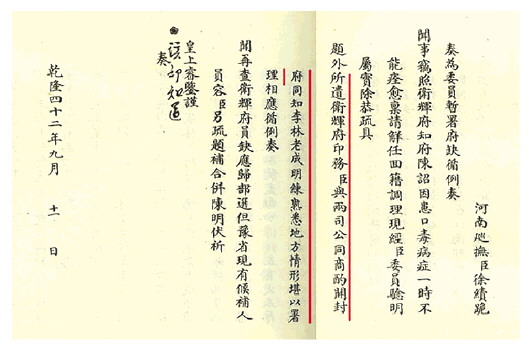 河南巡撫臣徐績跪
奏為委員暫署府缺循例奏
聞事竊照衛輝府知府陳詔因患口毒病症一時不
能痊愈稟請解任回籍調理現經臣委員驗明
屬實除恭疏具
題外所遺衛輝府印務臣與兩司公同商酌開封
府同知李林老成明練熟悉地方情形堪以署
理相應循例奏
聞再查衛輝府員缺應歸部選但豫省現有候補人
員容臣另疏題補合併陳明伏祈
皇上睿鑒謹
奏
該部知道
乾隆四十二年九月 十一 日